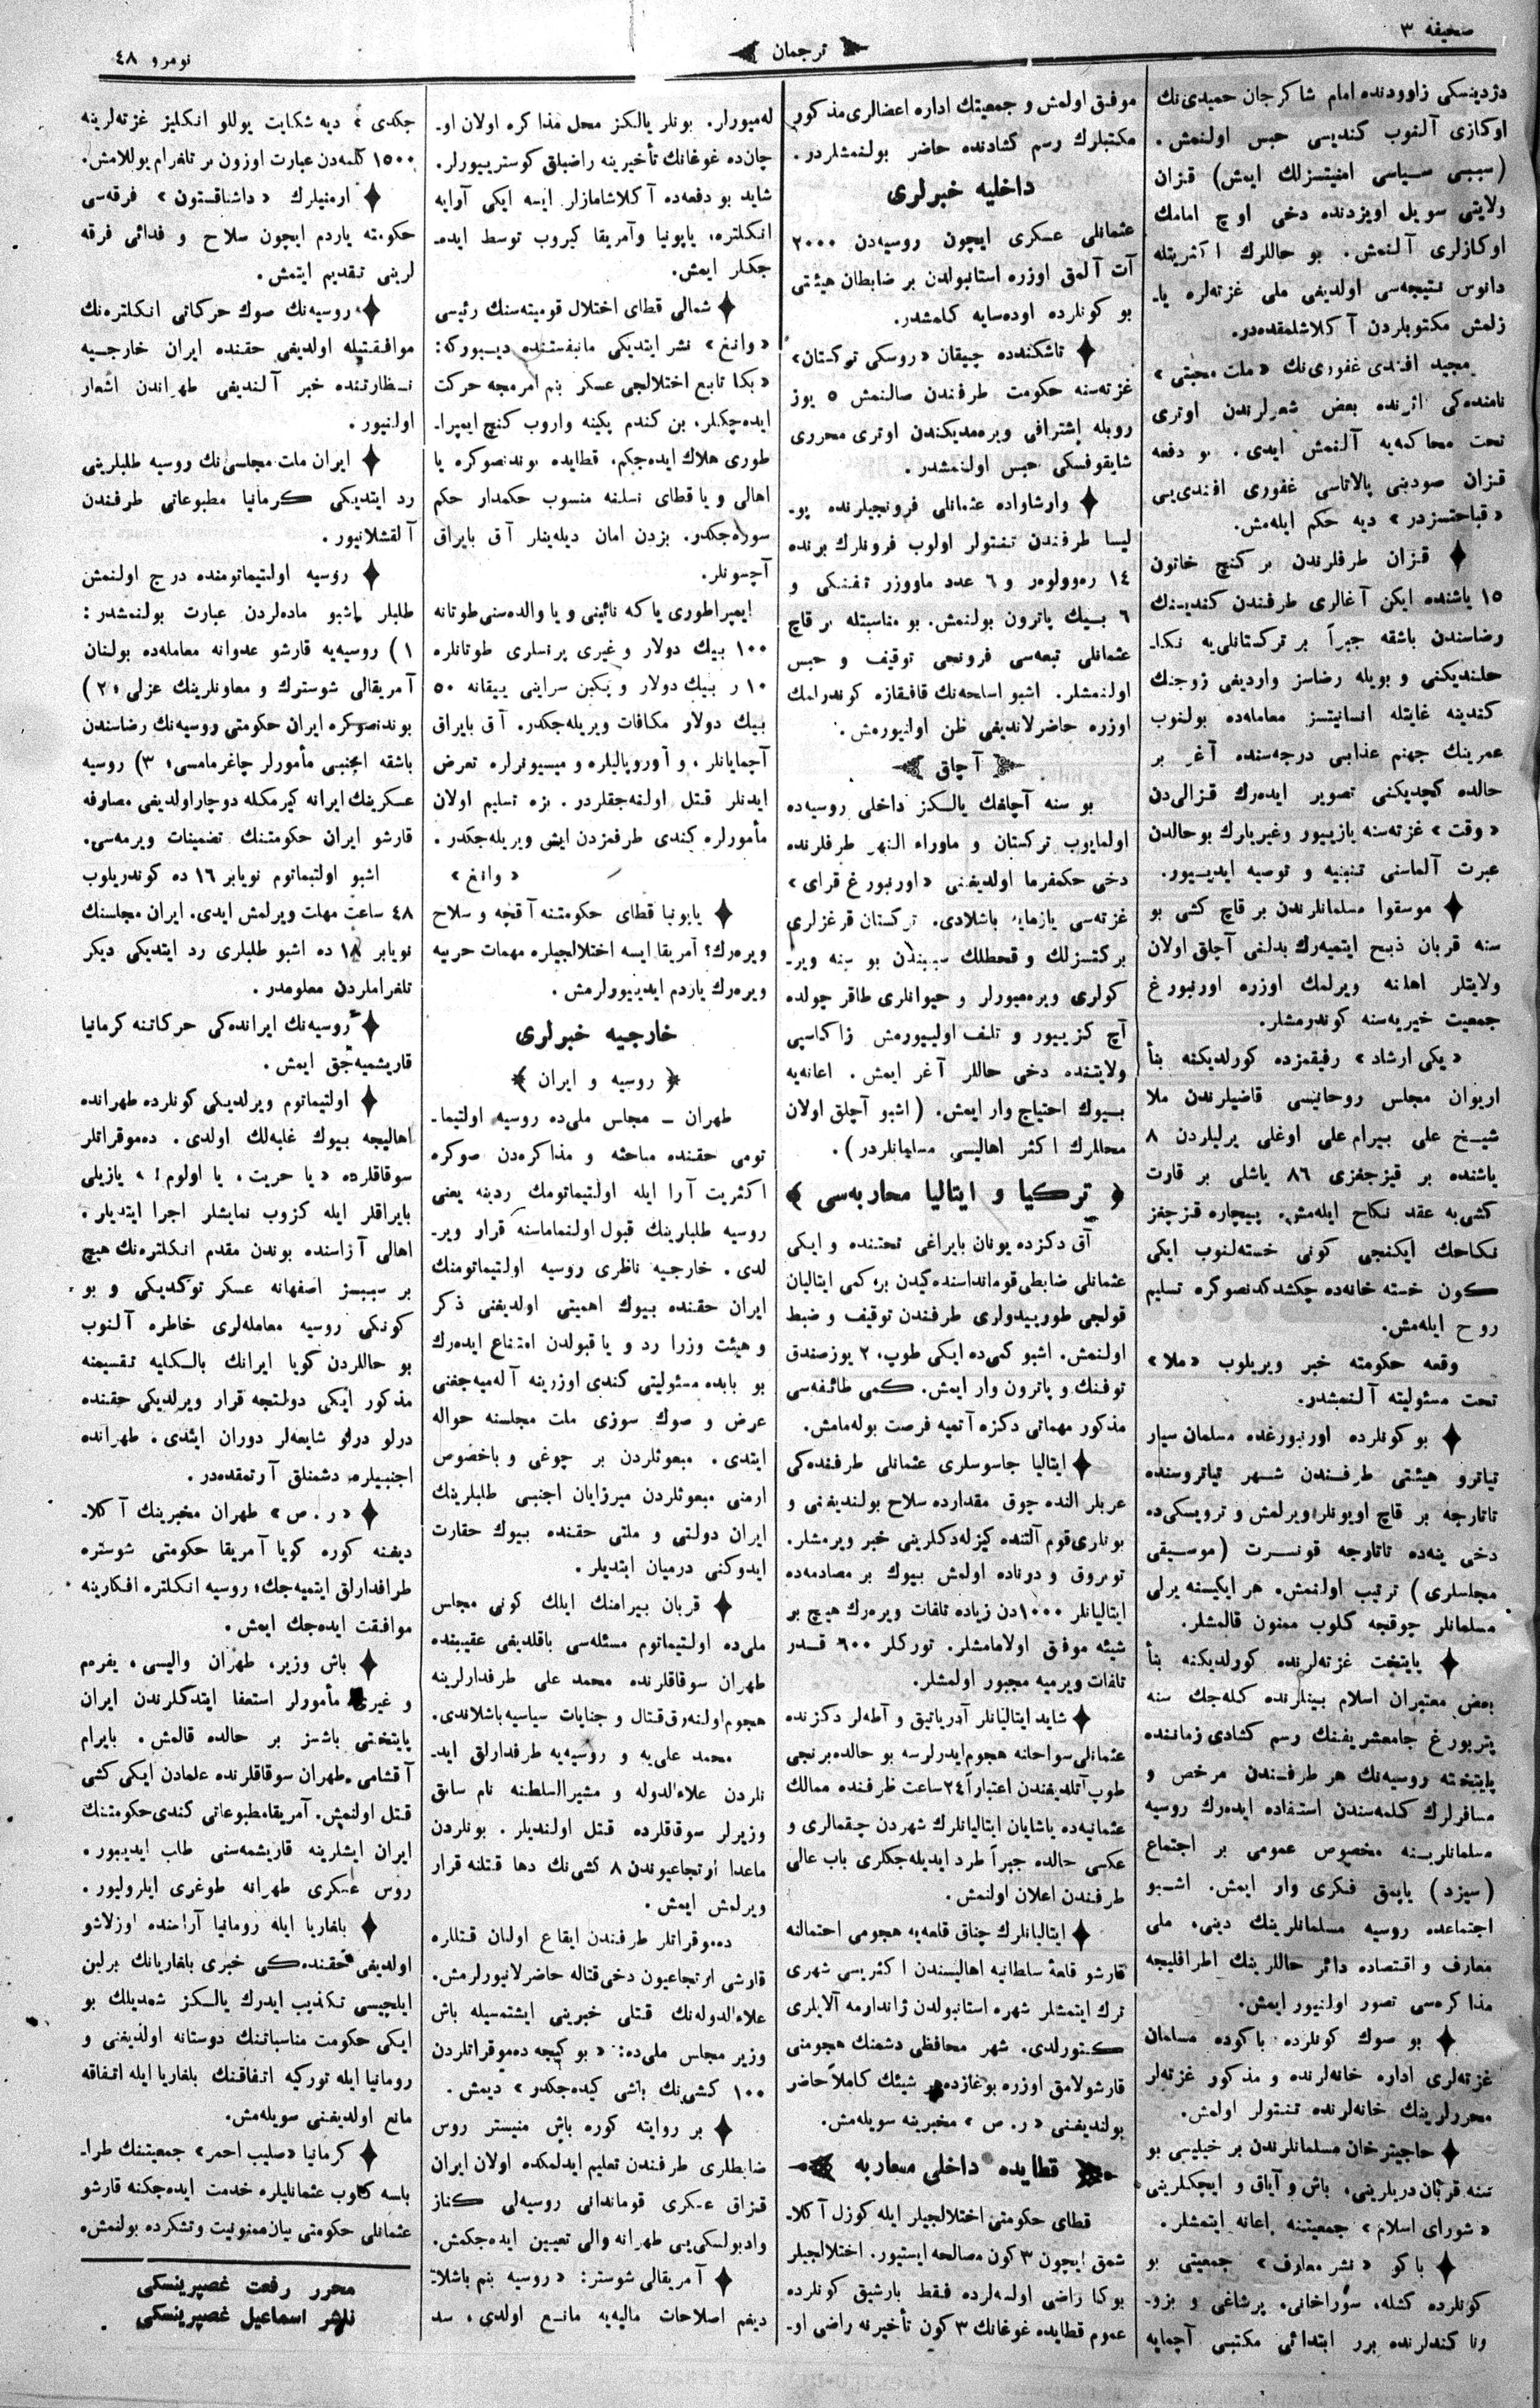 صحیفه ٣
ترجمان
نومرو ٤٨
دژدینسکی زاوودنده امام شاکرجان حمیدی‌نك
اوکازی آلنوب کندیسی حبس اولنمش.
(سببی سیاسی امنیتسزلك ایمش) قزان
ولایتی سویل اویزدنده دخی اوچ امامك
اوکازلری آلنمش. بو حاللرك اکثریتله
دانوس نتیجه‌سی اولدیغی ملی غزته‌لره یا-
زلمش مکتوبلردن آکلاشلمقده‌در.
مجید افندی غفوری‌نك «ملت محبتی»
نامنده‌کی اثرنده بعض شعرلرندن اوتری
تحت محاکمه‌یه آلنمش ایدی. بو دفعه
قزان صودبنی پالاتاسی غفوری افندی‌یی
«قباحتسزدر» دیه حکم ایله‌مش.
قزان طرفلرندن بر کنچ خاتون
١٥ یاشنده ایکن آغالری طرفندن کندیسنك
رضاسندن باشقه جبراً بر ترکستانلی‌یه نکا-
حلندیکنی و بویله رضاسز واردیغی زوجنك
کندینه غایتله انسانیتسز معامله‌ده بولنوب
عمرینك جهنم عذابی درجه‌سنده آغر بر
حالده کچدیکنی تصویر ایده‌رك قزالی‌دن
«وقت» غزته‌سنه یازییور وغیریلرك بوحالدن
عبرت آلماسنی تنبیه و توصیه ایدییور.
موسقوا مسلمانلرندن بر قاچ کشی بو
سنه قربان ذبح ایتمیه‌رك بدلنی آچلق اولان
ولایتلر اهلنه ویرلمك اوزره اورنبورغ
جمعیت خیریه‌سنه کوندرمشلر.
«یکی ارشاد» رفیقمزده کورلدیکنه بنأ
اریوان مجلس روحانیسی قاضیلرندن ملا
شیخ علی بیرام‌علی اوغلی یرلیلردن ٨
یاشنده بر قیزجغزی ٨٦ یاشلی بر قارت
کشی‌یه عقد نکاح ایله‌مش. بیچاره قزجغز
نکاحك ایکنجی کونی خسته‌لنوب ایکی
کون خسته خانه‌ده چکشدکدنصوکره تسلیم
روح ایله‌مش.
وقعه حکومته خبر ویریلوب «ملا»
تحت مسئولیته آلنمشدر.
بو کونلرده اورنبورغده مسلمان سیار
تیاترو هیئتی طرفندن شهر تیاتروسنده
تاتارجه بر قاچ اویونلر ویرلمش و ترویسکی‌ده
دخی ینه‌ده تاتارجه قونسرت (موسیقی
مجلسلری) ترتیب اولنمش. هر ایکیسنه یرلی
مسلمانلر چوقچه کلوب ممنون قالمشلر.
پایتخت غزته‌لرنده کورلدیکنه بنأ
بعض معتبران اسلام بینلرنده کله‌جك سنه
پتربورغ جامعشریفنك رسم کشادی زماننده
پایتخته روسیه‌نك هر طرفندن مرخص و
مسافرلرك کلمه‌سندن استفاده ایده‌رك روسیه
مسلمانلرینه مخصوص عمومی بر اجتماع
(سیزد) یاپمق فکری وار ایمش. اشبو
اجتماعده روسیه مسلمانلرینك دینی، ملی
معارف و اقتصاده دائر حاللرینك اطرافلیجه
مذاکره‌سی تصور اولنیور ایمش.
بو صوك کونلرده باکوده مسلمان
غزته‌لری اداره خانه‌لرنده و مذکور غزته‌لر
محررلرینك خانه‌لرنده تنتولر اولمش.
حاجیترخان مسلمانلرندن بر خیلیسی بو
سنه قربان دریلرینی، باش و آیاق و ایچکلرینی
«شورای اسلام» جمعیتنه اعانه ایتمشلر.
باکو «نشر معارف» جمعیتی بو
کونلرده کشله، سوراخانی، پرشاغی و بزو-
ونا کندلرنده برر ابتدائی مکتبی آچمایه
موفق اولمش و جمعیتك اداره اعضالری مذکور
مکتبلرك رسم کشادنده حاضر بولنمشلردر.
داخلیه خبرلری
عثمانلی عسکری ایچون روسیه‌دن ٢٠٠٠
آت آلمق اوزره استانبولدن بر ضابطان هیئتی
بو کونلرده اوده‌سایه کلمشدر.
تاشکندده چیقان «روسکی ترکستان»
غزته‌سنه حکومت طرفندن صالنمش ٥ یوز
روبله اشترافی ویره‌مدیکندن اوتری محرری
شایقوفسکی حبس اولنمشدر.
وارشاواده عثمانلی فرونجیلرنده پو-
لیسا طرفندن تنتولر اولوب فرونلرك برنده
١٤ ره‌وولوه‌ر و ٦ عدد ماووزر تفنکی و
٦ بیك پاترون بولنمش. بو مناسبتله بر قاچ
عثمانلی تبعه‌سی فرونجی توقیف و حبس
اولنمشلر. اشبو اسلحه‌نك قافقازه کوندرلمك
اوزره حاضرلاندیغی ظن اولنیورمش.
آچلق
بو سنه آچلغك یالکز داخلی روسیه‌ده
اولمایوب ترکستان و ماوراء النهر طرفلرنده
دخی حکمفرما اولدیغنی «اورنبورغ قرای»
غزته‌سی یازمایه باشلادی. ترکستان قرغزلری
برکتسزلك و قحطلك سببندن بو سنه ویر-
کولری ویره‌میورلر و حیوانلری طاقر چولده
آچ کزییور و تلف اولییورمش زاکاسپی
ولایتنده دخی حاللر آغر ایمش. اعانه‌یه
بیوك احتیاج وار ایمش. (اشبو آچلق اولان
محاللرك اکثر اهالیسی مسلمانلردر).
ترکیا و ایتالیا محاربه‌سی
آق دکزده یونان بایراغی تحتنده و ایکی
عثمانلی ضابطی قوماندا‌سنده کیدن بر کمی ایتالیان
قولجی طورپیدولری طرفندن توقیف و ضبط
اولنمش. اشبو کمی‌ده ایکی طوپ، ٢ یوز صندق
توفنك و پاترون وار ایمش. کمی طائفه‌سی
مذکور مهماتی دکزه آتمیه فرصت بوله‌مامش.
ایتالیا جاسوسلری عثمانلی طرفنده‌کی
عربلر النده چوق مقدارده سلاح بولندیغنی و
بونلری قوم آلتنده کیزله‌دکلرینی خبر ویرمشلر.
توبروق و دوناده اولمش بیوك بر مصادمه‌ده
ایتالیانلر ١٠٠٠دن زیاده تلفات ویره‌رك هیچ بر
شیئه موفق اولامامشلر. تورکلر ٦٠٠ قدر
تلفات ویرمیه مجبور اولمشلر.
شاید ایتالیانلر آدریاتیق و آطه‌لر دکزنده
عثمانلی سواحلنه هجوم ایدرلرسه بو حالده برنجی
طوپ آتلدیغندن اعتباراً ٢٤ساعت ظرفنده ممالك
عثمانیه‌ده یاشایان ایتالیانلرك شهردن چقمالری و
عکسی حالده جبراً طرد ایدیله‌جکلری باب عالی
طرفندن اعلان اولنمش.
ایتالیانلرك چناق قلعه‌یه هجومی احتمالنه
قارشو قلعهٔ سلطانیه اهالیسندن اکثریسی شهری
ترك ایتمشلر شهره استانبولدن ژاندارمه آلایلری
کتورلدی. شهر محافظی دشمنك هجومنی
قارشولامق اوزره بوغازده هر شیئك کاملاً حاضر
بولندیغنی «ر. ص» مخبرینه سویله‌مش.
قطایده داخلی محاربه
قطای حکومتی اختلالجیلر ایله کوزل آکلا-
شمق ایچون ٣ کون مصالحه ایستیور. اختلالجیلر
بوکا راضی اولمه‌لرده فقط بارشیق کونلرده
عموم قطایده غوغانك ٣ کون تأخیرنه راضی او-
له‌میورلر. بونلر یالکز محل مذاکره اولان او-
چان‌ده غوغانك تأخیرینه راضیلق کوستریییورلر.
شاید بو دفعه‌ده آکلاشامازلر ایسه ایکی آرایه
انکلتره، یاپونیا وآمریقا کیروب توسط ایده-
جکلر ایمش.
شمالی قطای اختلال قومیته‌سنك رئیسی
«وانغ» نشر ایتدیکی مانیفستنده دییورکه:
«بکا تابع اختلالجی عسکر بنم امرمجه حرکت
ایده‌چکلر، بن کندم پکینه واروب کنچ ایمپرا-
طوری هلاك ایده‌جکم. قطایده بوندنصوکره یا
اهالی و یا قطای نسلنه منسوب حکمدار حکم
سوره‌جکدر. بزدن امان دیله‌ینلر آق بایراق
آچسونلر.
ایمپراطوری یاکه نائبنی و یا والده‌سنی طوتانه
١٠٠ بیك دولار و غیری پرنسلری طوتانلره
١٠ ر بیك دولار و پکین سراینی ییقانه ٥٠
بیك دولار مکافات ویریله‌جکدر. آق بایراق
آچمایانلر، و آوروپالیلره و میسیونرلره تعرض
ایدنلر قتل اولنه‌جقلردر. بزه تسلیم اولان
مأمورلره کندی طرفمزدن ایش ویریله‌جکدر.
«وانغ»
یاپونیا قطای حکومتنه آقچه و سلاح
ویره‌رك؛ آمریقا ایسه اختلالجیلره مهمات حربیه
ویره‌رك یاردم ایدییوورلرمش.
خارجیه خبرلری
روسیه و ایران
طهران ـ مجلس ملی‌ده روسیه اولتیما-
تومی حقنده مباحثه و مذاکره‌دن صوکره
اکثریت آرا ایله اولتیماتومك ردینه یعنی
روسیه طلبلرینك قبول اولنماماسنه قرار ویر-
لدی. خارجیه ناظری روسیه اولتیماتومنك
ایران حقنده بیوك اهمیتی اولدیغنی ذکر
و هیئت وزرا رد و یا قبولدن امتناع ایده‌رك
بو بابده مسئولیتی کندی اوزرینه آله‌میه‌جغنی
عرض و صوك سوزی ملت مجلسنه حواله
ایتدی. مبعوثلردن بر چوغی و باخصوص
ارمنی مبعوثلردن میرزایان اجنبی طلبلرینك
ایران دولتی و ملتی حقنده بیوك حقارت
ایدوکنی درمیان ایتدیلر.
قربان بیرامنك ایلك کونی مجلس
ملی‌ده اولتیماتوم مسئله‌سی باقلدیغی عقیبنده
طهران سوقاقلرنده محمد علی طرفدارلرینه
هجوم اولنه‌رق قتال و جنایات سیاسیه باشلاندی.
محمد علی‌یه و روسیه‌یه طرفدارلق اید-
نلردن علاءالدوله و مشیرالسلطنه نام سابق
وزیرلر سوقاقلرده قتل اولندیلر. بونلردن
ماعدا ارتجاعیوندن ٨ کشی‌نك دها قتلنه قرار
ویرلمش ایمش.
ده‌موقراتلر طرفندن ایقاع اولنان قتللره
قارشی ارتجاعیون دخی قتاله حاضرلانیورلرمش.
علاءالدوله‌نك قتلی خبرینی ایشتمسیله باش
وزیر مجلس ملی‌ده: «بو کیجه ده‌موقراتلردن
١٠٠ کشی‌نك باشی کیده‌جکدر» دیمش.
بر روایته کوره باش منیستر روس
ضابطلری طرفندن تعلیم ایدلمکده اولان ایران
قزاق عسکری قوماندانی روسیه‌لی کناز
وادبولسکی‌یی طهرانه والی تعیین ایده‌جکمش.
آمریقالی شوستر: «روسیه بنم باشلا-
دیغم اصلاحات مالیه‌یه مانع اولدی، سد
جکدی» دیه شکایت یوللو انکلیز غزته‌لرینه
١٥٠٠ کلمه‌دن عبارت اوزون بر تلغرام یوللامش.
ارمنیلرك «داشناقستون» فرقه‌سی
حکومته یاردم ایچون سلاح و فدائی فرقه
لرینی تقدیم ایتمش.
روسیه‌نك صوك حرکاتی انکلتره‌نك
موافقتیله اولدیغی حقنده ایران خارجیه
نظارتنده خبر آلندیغی طهراندن اشعار
اولنیور.
ایران ملت مجلسی‌نك روسیه طلبلرینی
رد ایتدیکی کرمانیا مطبوعاتی طرفندن
آلقشلانیور.
روسیه اولتیماتومنده درج اولنمش
طلبلر اشبو ماده‌لردن عبارت بولنمشدر:
١) روسیه‌یه قارشو عدوانه معامله‌ده بولنان
آمریقالی شوسترك و معاونلرینك عزلی؛ ٢)
بوندنصوکره ایران حکومتی روسیه‌نك رضاسندن
باشقه اجنبی مأمورلر چاغرمامسی؛ ٣) روسیه
عسکرینك ایرانه کیرمکله دوچار اولدیغی مصارفه
قارشو ایران حکومتنك تضمینات ویرمه‌سی.
اشبو اولتیماتوم نویابر ١٦ ده کوندریلوب
٤٨ ساعت مهلت ویرلمش ایدی. ایران مجلسنك
نویابر ١٨ ده اشبو طلبلری رد ایتدیکی دیکر
تلغراملردن معلومدر.
روسیه‌نك ایرانده‌کی حرکاتنه کرمانیا
قاریشمیه‌جق ایمش.
اولتیماتوم ویرلدیکی کونلرده طهرانده
اهالیجه بیوك غلبه‌لك اولدی. ده‌موقراتلر
سوقاقلرده «یا حریت، یا اولوم!» یازیلی
بایراقلر ایله کزوب نمایشلر اجرا ایتدیلر.
اهالی آراسنده بوندن مقدم انکلتره‌نك هیچ
بر سببسز اصفهانه عسکر توکدیکی و بو
کونکی روسیه معامله‌لری خاطره آلنوب
بو حاللردن کویا ایرانك بالکلیه تقسیمنه
مذکور ایکی دولتجه قرار ویرلدیکی حقنده
درلو درلو شایعه‌لر دوران ایتدی. طهرانده
اجنبیلره دشمنلق آرتمقده‌در.
«ر. ص» طهران مخبرینك آکلا-
دیغنه کوره کویا آمریقا حکومتی شوستره
طرافدارلق ایتمیه‌جك؛ روسیه انکلتره افکارینه
موافقت ایده‌جك ایمش.
باش وزیر، طهران والیسی، یفرم
و غیری مأمورلر استعفا ایتدکلرندن ایران
پایتختی باشسز بر حالده قالمش. بایرام
آقشامی طهران سوقاقلرنده علمادن ایکی کشی
قتل اولنمش. آمریقا مطبوعاتی کندی حکومتنك
ایران ایشلرینه قاریشمه‌سنی طلب ایدییور.
روس عسکری طهرانه طوغری ایلرولیور.
بلغاریا ایله رومانیا آراسنده اوزلاشو
اولدیغی حقنده‌کی خبری بلغاریانك برلین
ایلچیسی تکذیب ایدرك یالکز شمدیلك بو
ایکی حکومت مناسباتنك دوستانه اولدیغنی و
رومانیا ایله تورکیه اتفاقنك بلغاریا ایله اتفاقه
مانع اولدیغنی سویله‌مش.
کرمانیا «صلیب احمر» جمعیتنك طرا-
بلسه کلوب عثمانلیلره خدمت ایده‌جکنه قارشو
عثمانلی حکومتی بیان ممنونیت و تشکرده بولنمش.
محرر رفعت غصپرینسکی
ناشر اسماعیل غصپرینسکی